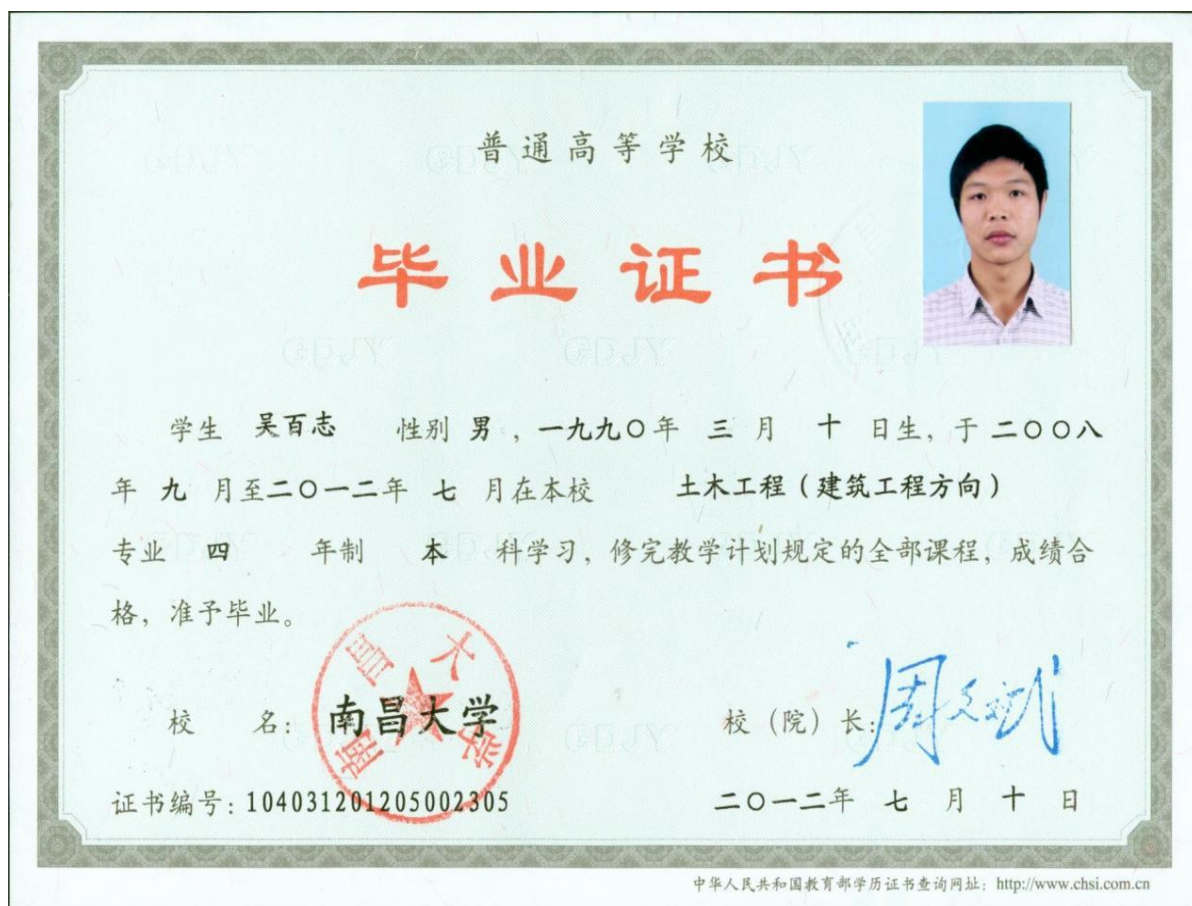 普通高等学校
毕业证书
学生 吴百志 性别 男，一九九〇年 三 月 十 日生，于 二〇〇八
年 九 月至二〇一二年 七 月在本校 土木工程（建筑工程方向）
专业 四 年制 本 科学习，修完教学计划规定的全部课程，成绩合
格，准予毕业。
南昌大学
校 名：南昌大学
校（院）长：周文斌
证书编号：104031201205002305
二〇一二年 七 月 十 日
中华人民共和国教育部学历证书查询网址：http://www.chsi.com.cn